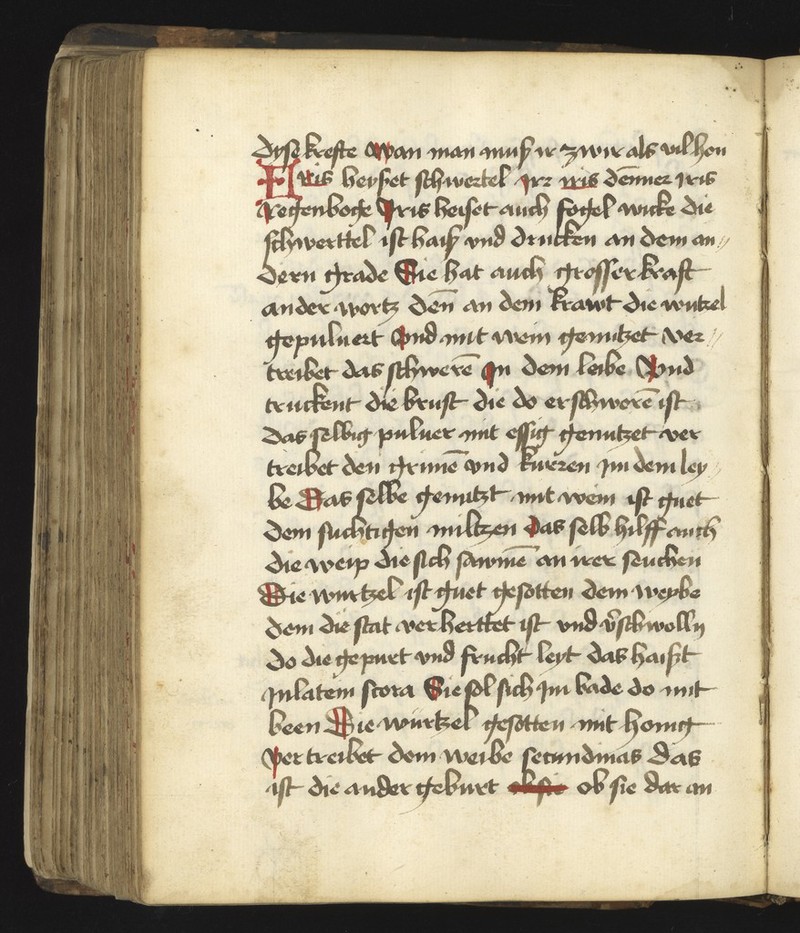 dyse krefte Wan man muß ir zwir als vil hen
Iris heyset schwertel Irz iris deñner iris
Regenboge Iris heiset auch fogel wicke die
schwerttel ist haiß vnd drucken an dem an„
dern grade Sie hat auch grosser kraft
an der wortz deñ an dem krawt die wutzel
gepuluert Vnd mit wein genutzet ver„
treibet das schwerē In dem leibe Vnd
truckent die brust die do erschworē ist
das selbig puluer mit essig genutzet ver
treibet den grimē vnd kurren im dem ley„
be Das selbe genutzt mit wein ist guet
dem suchtigen miltzen Das selb hilff auch
die weip die sich sawmē an irer seuchen
Die wurtzel ist guet gesotten dem weybe
dem die stat verherttet ist vnd v̾schwolln
do die gepurt vnd frucht leyt das haißt
In latein scora Sie sol sich im bade do mit
been Die würtzel gesotten mit honig
vertreibet dem weibe secundinas das
ist die ander geburt ob sie dar an